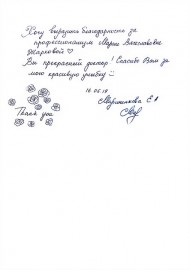 Хочу выразить благодарность за
профессионализм Марии Вячеславовне
Жарковой ♡
Вы прекрасный доктор! Спасибо Вам за
мою красивую улыбку
16.05.18
Мартынкова Е.А
Thank you